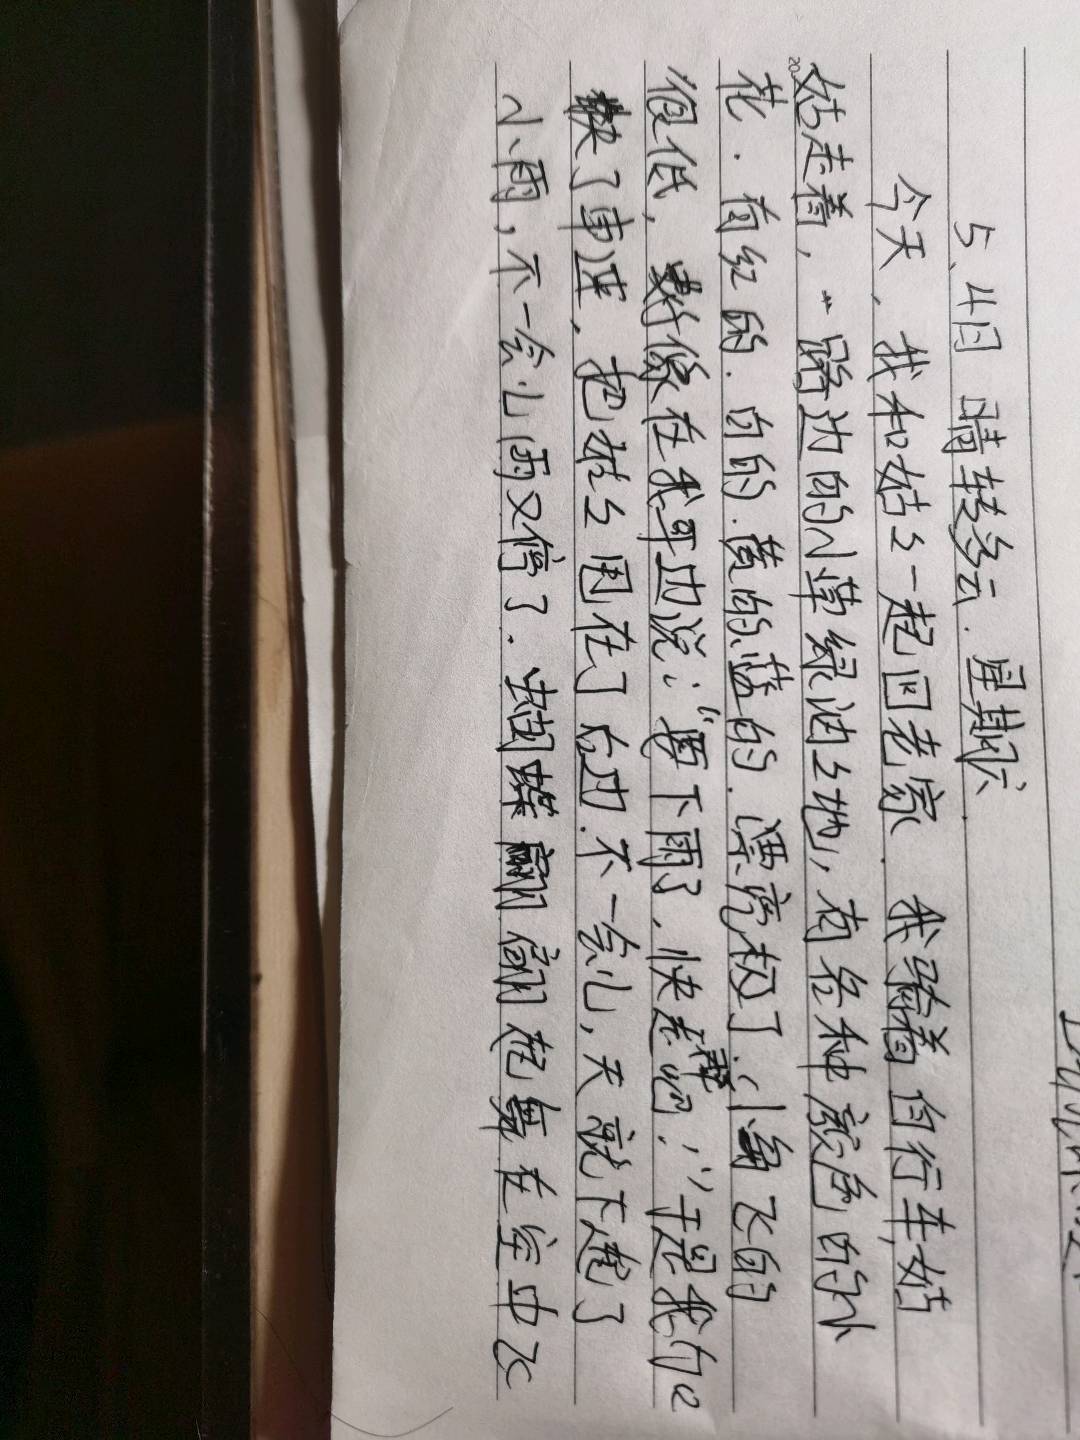 5、4日 晴转多云. 星期六
今天, 我和姑々一起回老家. 我骑着自行车, 姑
姑走着, 一路边的小草绿油々地, 有各种颜色的小
花. 有红的. 白的. 黄的. 蓝的. 漂亮极了. 小鸟飞的
很低, 好像在我耳边说: “要下雨了, 快走吧!” 于是我们
快了车速, 把姑々甩在了后边. 不一会儿, 天就下起了
小雨, 不一会儿雨又停了. 蝴蝶翩翩起舞在空中飞